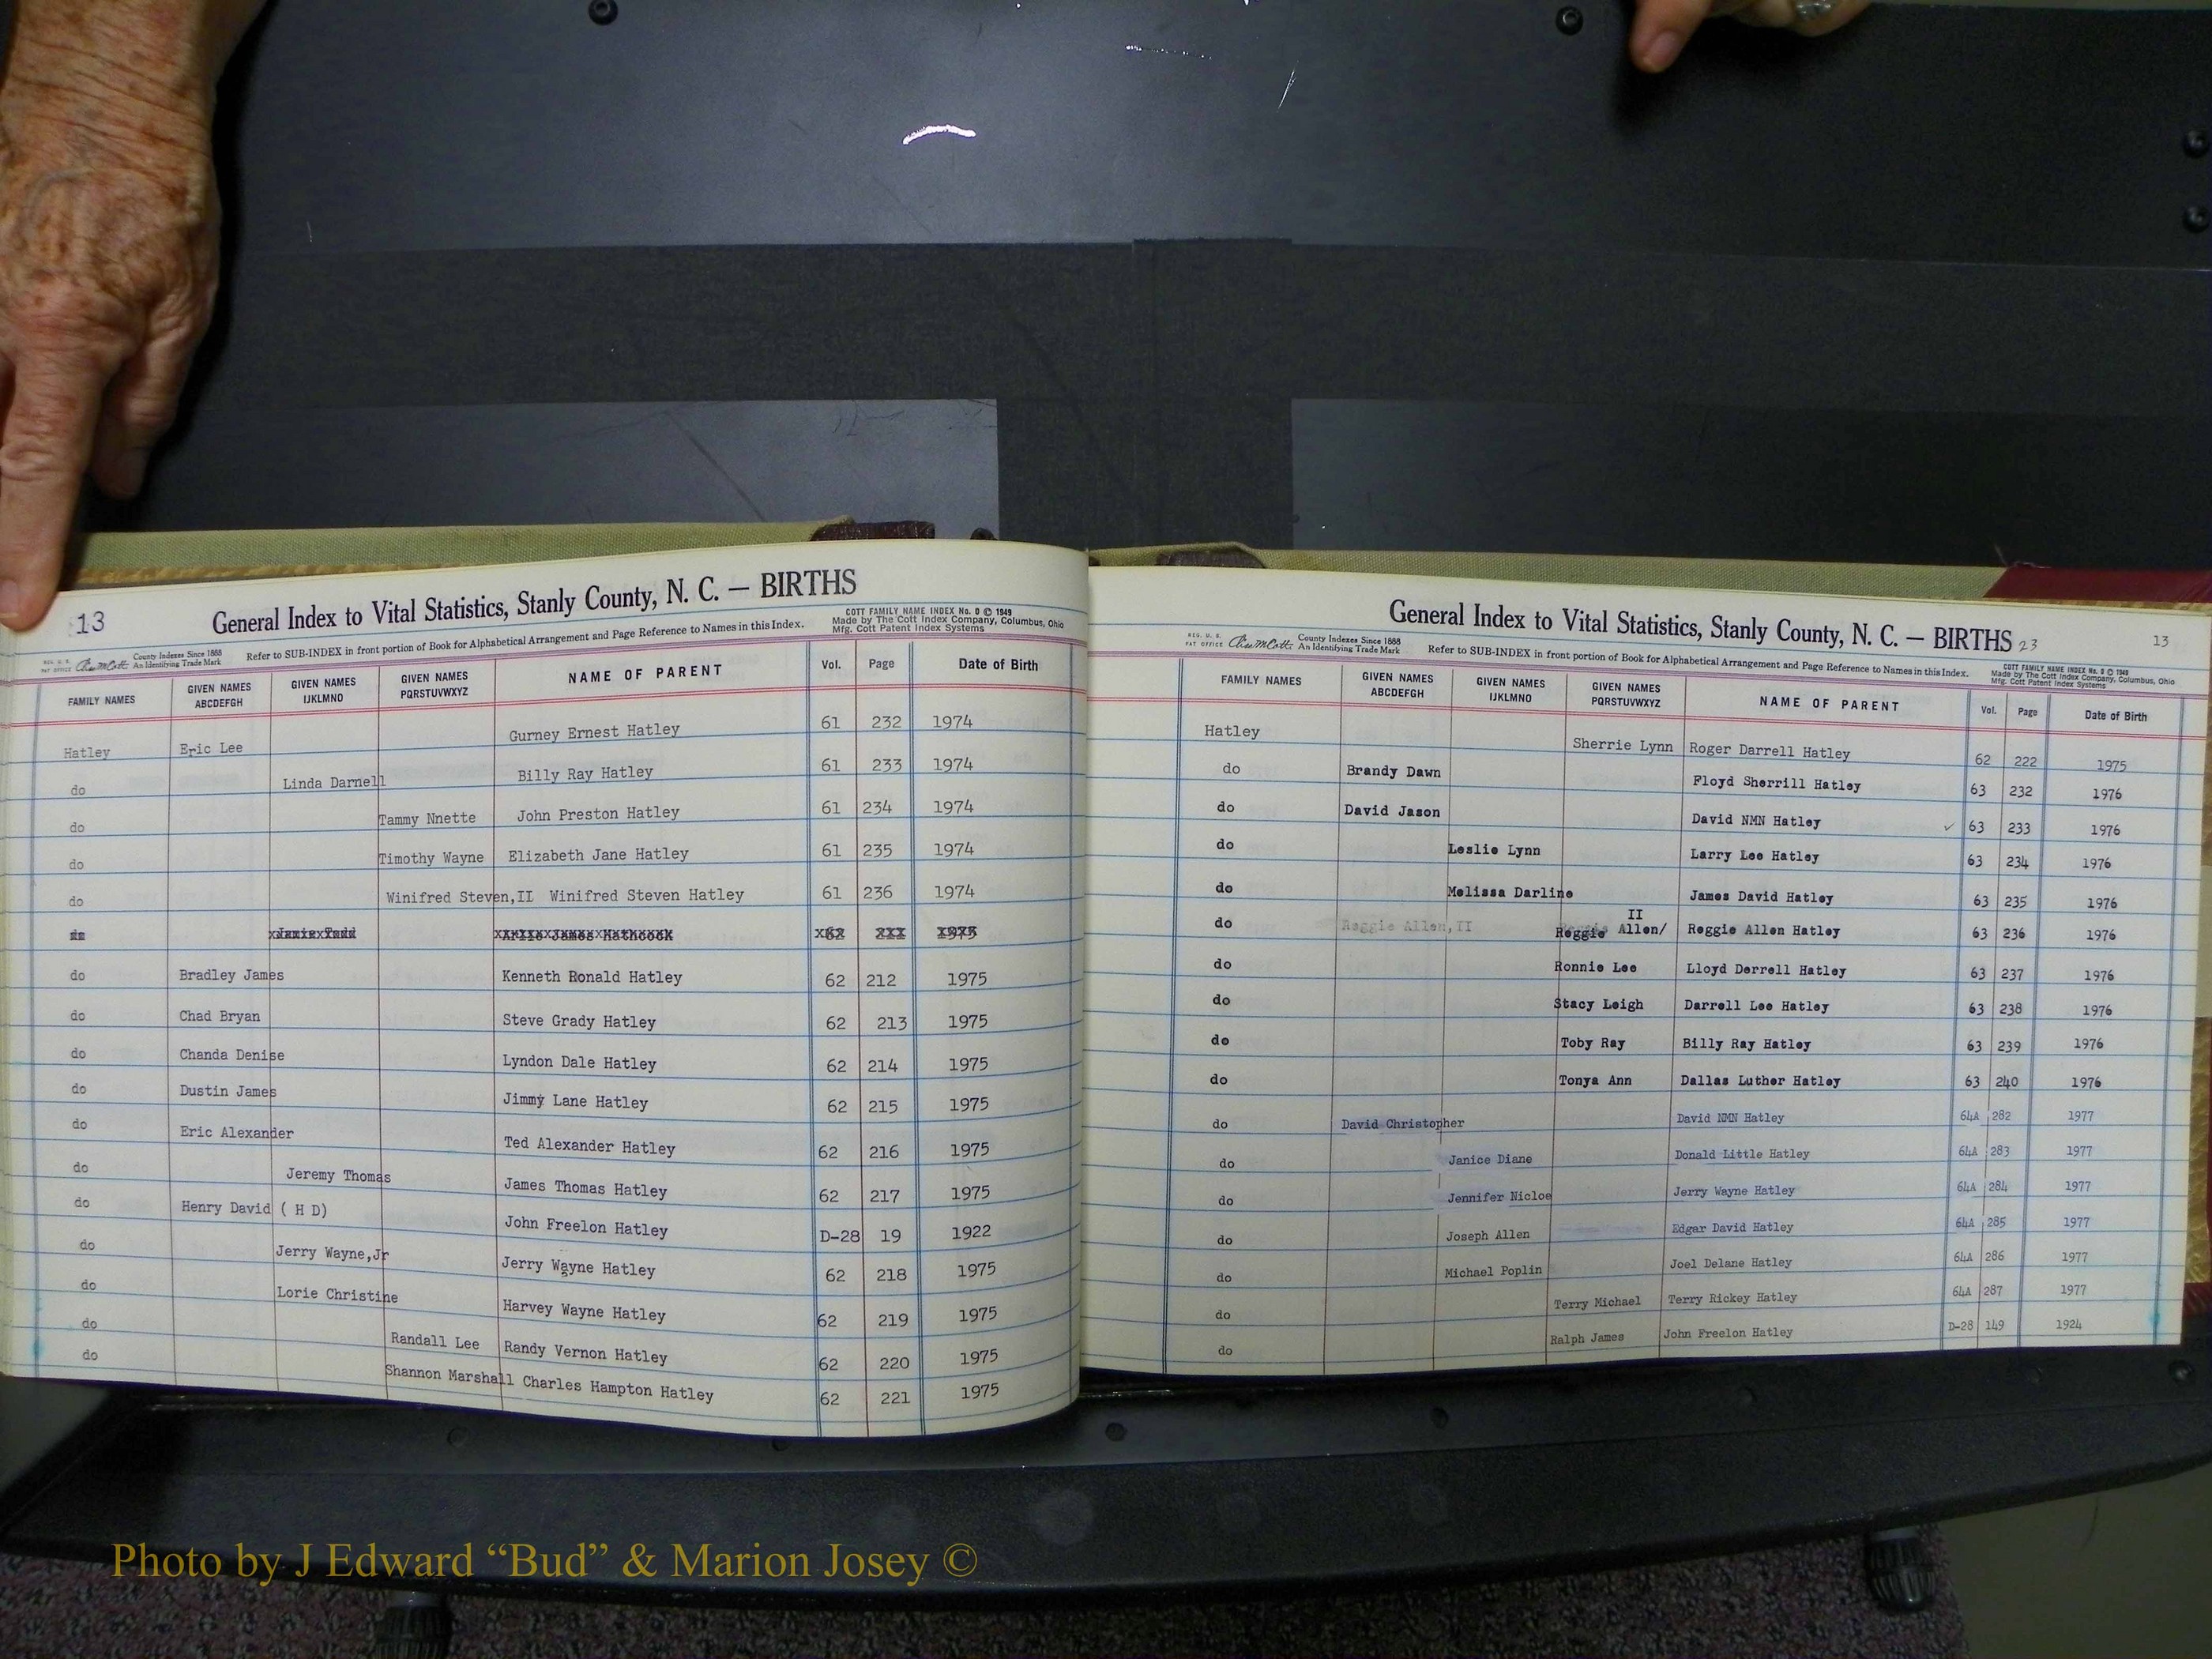 13
General Index to Vital Statistics, Stanly County, N. C. — BIRTHS
COTT FAMILY NAME INDEX No. 0 © 1949
Made by The Cott Index Company, Columbus, Ohio
Mfg. Cott Patent Index Systems
REG. U. S. PAT OFFICE
County Indexes Since 1888
An Identifying Trade Mark
Refer to SUB-INDEX in front portion of Book for Alphabetical Arrangement and Page Reference to Names in this Index.
FAMILY NAMES GIVEN NAMES ABCDEFGH GIVEN NAMES IJKLMNO GIVEN NAMES PQRSTUVWXYZ NAME OF PARENT Vol. Page Date of Birth
Hatley Eric Lee Gurney Ernest Hatley 61 232 1974
do Linda Darnell Billy Ray Hatley 61 233 1974
do Tammy Nnette John Preston Hatley 61 234 1974
do Timothy Wayne Elizabeth Jane Hatley 61 235 1974
do Winifred Steven,II Winifred Steven Hatley 61 236 1974
do Bradley James Kenneth Ronald Hatley 62 212 1975
do Chad Bryan Steve Grady Hatley 62 213 1975
do Chanda Denise Lyndon Dale Hatley 62 214 1975
do Dustin James Jimmy Lane Hatley 62 215 1975
do Eric Alexander Ted Alexander Hatley 62 216 1975
do Jeremy Thomas James Thomas Hatley 62 217 1975
do Henry David ( H D) John Freelon Hatley D-28 19 1922
do Jerry Wayne,Jr Jerry Wayne Hatley 62 218 1975
do Lorie Christine Harvey Wayne Hatley 62 219 1975
do Randall Lee Randy Vernon Hatley 62 220 1975
do Shannon Marshall Charles Hampton Hatley 62 221 1975
General Index to Vital Statistics, Stanly County, N. C. — BIRTHS 23
13
REG. U. S. PAT OFFICE
County Indexes Since 1888
An Identifying Trade Mark
Refer to SUB-INDEX in front portion of Book for Alphabetical Arrangement and Page Reference to Names in this Index.
COTT FAMILY NAME INDEX No. 0 © 1949
Made by The Cott Index Company, Columbus, Ohio
Mfg. Cott Patent Index Systems
FAMILY NAMES GIVEN NAMES ABCDEFGH GIVEN NAMES IJKLMNO GIVEN NAMES PQRSTUVWXYZ NAME OF PARENT Vol. Page Date of Birth
Hatley Sherrie Lynn Roger Darrell Hatley 62 222 1975
do Brandy Dawn Floyd Sherrill Hatley 63 232 1976
do David Jason David NMN Hatley ✓ 63 233 1976
do Leslie Lynn Larry Lee Hatley 63 234 1976
do Melissa Darline James David Hatley 63 235 1976
II
do Reggie Allen,II Reggie Allen/ Reggie Allen Hatley 63 236 1976
do Ronnie Lee Lloyd Derrell Hatley 63 237 1976
do Stacy Leigh Darrell Lee Hatley 63 238 1976
do Toby Ray Billy Ray Hatley 63 239 1976
do Tonya Ann Dallas Luther Hatley 63 240 1976
do David Christopher David NMN Hatley 64A 282 1977
do Janice Diane Donald Little Hatley 64A 283 1977
do Jennifer Nicloe Jerry Wayne Hatley 64A 284 1977
do Joseph Allen Edgar David Hatley 64A 285 1977
do Michael Poplin Joel Delane Hatley 64A 286 1977
do Terry Michael Terry Rickey Hatley 64A 287 1977
do Ralph James John Freelon Hatley D-28 149 1924
Photo by J Edward “Bud” & Marion Josey ©